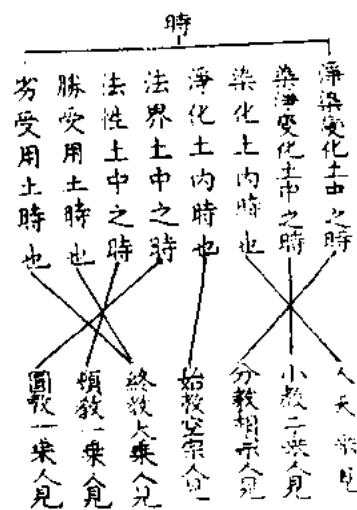 時
淨染變化土中之時
染淨變化土中之時
染化土內時也
淨化土內時也
法界土中之時
法性土中之時
勝受用土時也
劣受用土時也
人天乘見
小教二乘人見
分教相宗人見
始教空宗人見
終教大乘人見
頓教一乘人見
圓教一乘人見